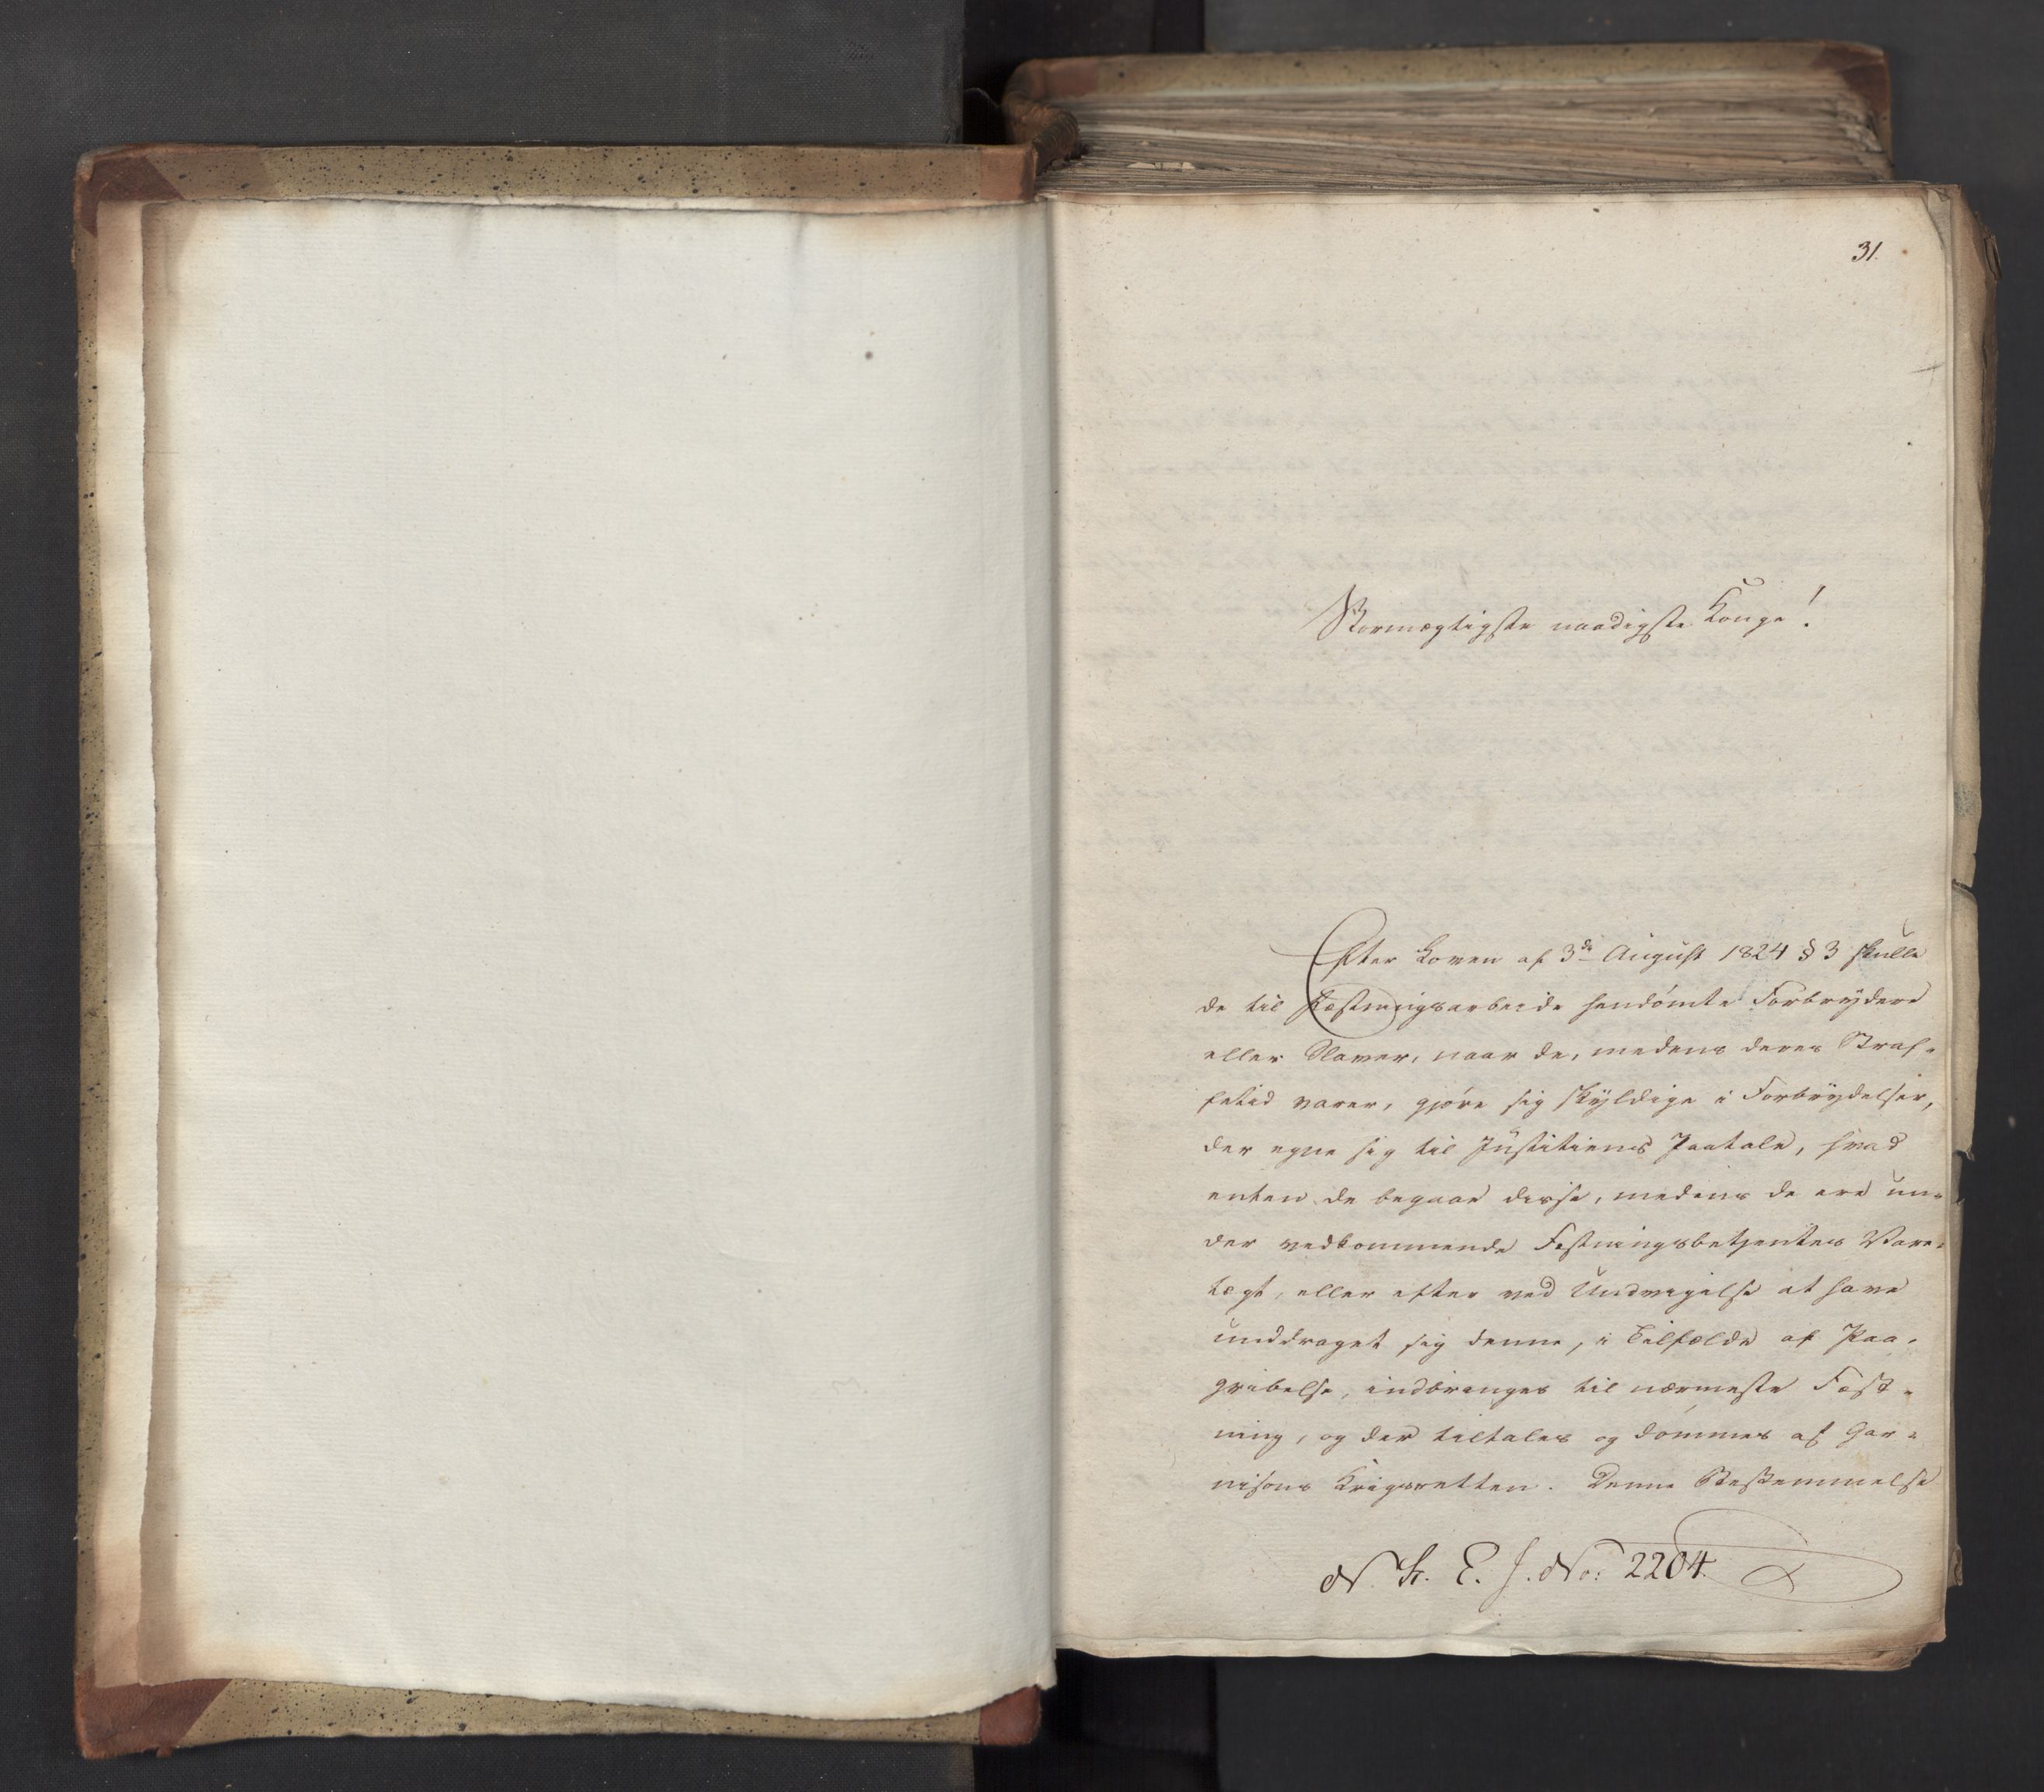 31.
Stormægtigste naadigste Konge!
Efter Loven af 3de August 1824 § 3 skulle
de til Fæstningsarbeide hendömte Forbrydere
eller Slaver, naar de, medens deres Straf-
fetid varer, gjöre sig skyldige i Forbrydelser,
der egne sig til Justitiens Paatale, hvad
enten de begaae disse, medens de ere un-
der vedkommende Festningsbetjentes Vare-
tægt, eller efter ved Undvigelse at have
unddraget sig denne, i Tilfælde af Paa-
gribelse, indbringes til nærmeste Fæst-
ning, og der tiltales og dömmes af Gar-
nisons Krigsretten. Denne Bestemmelse
N. R. E. J. No: 2204.